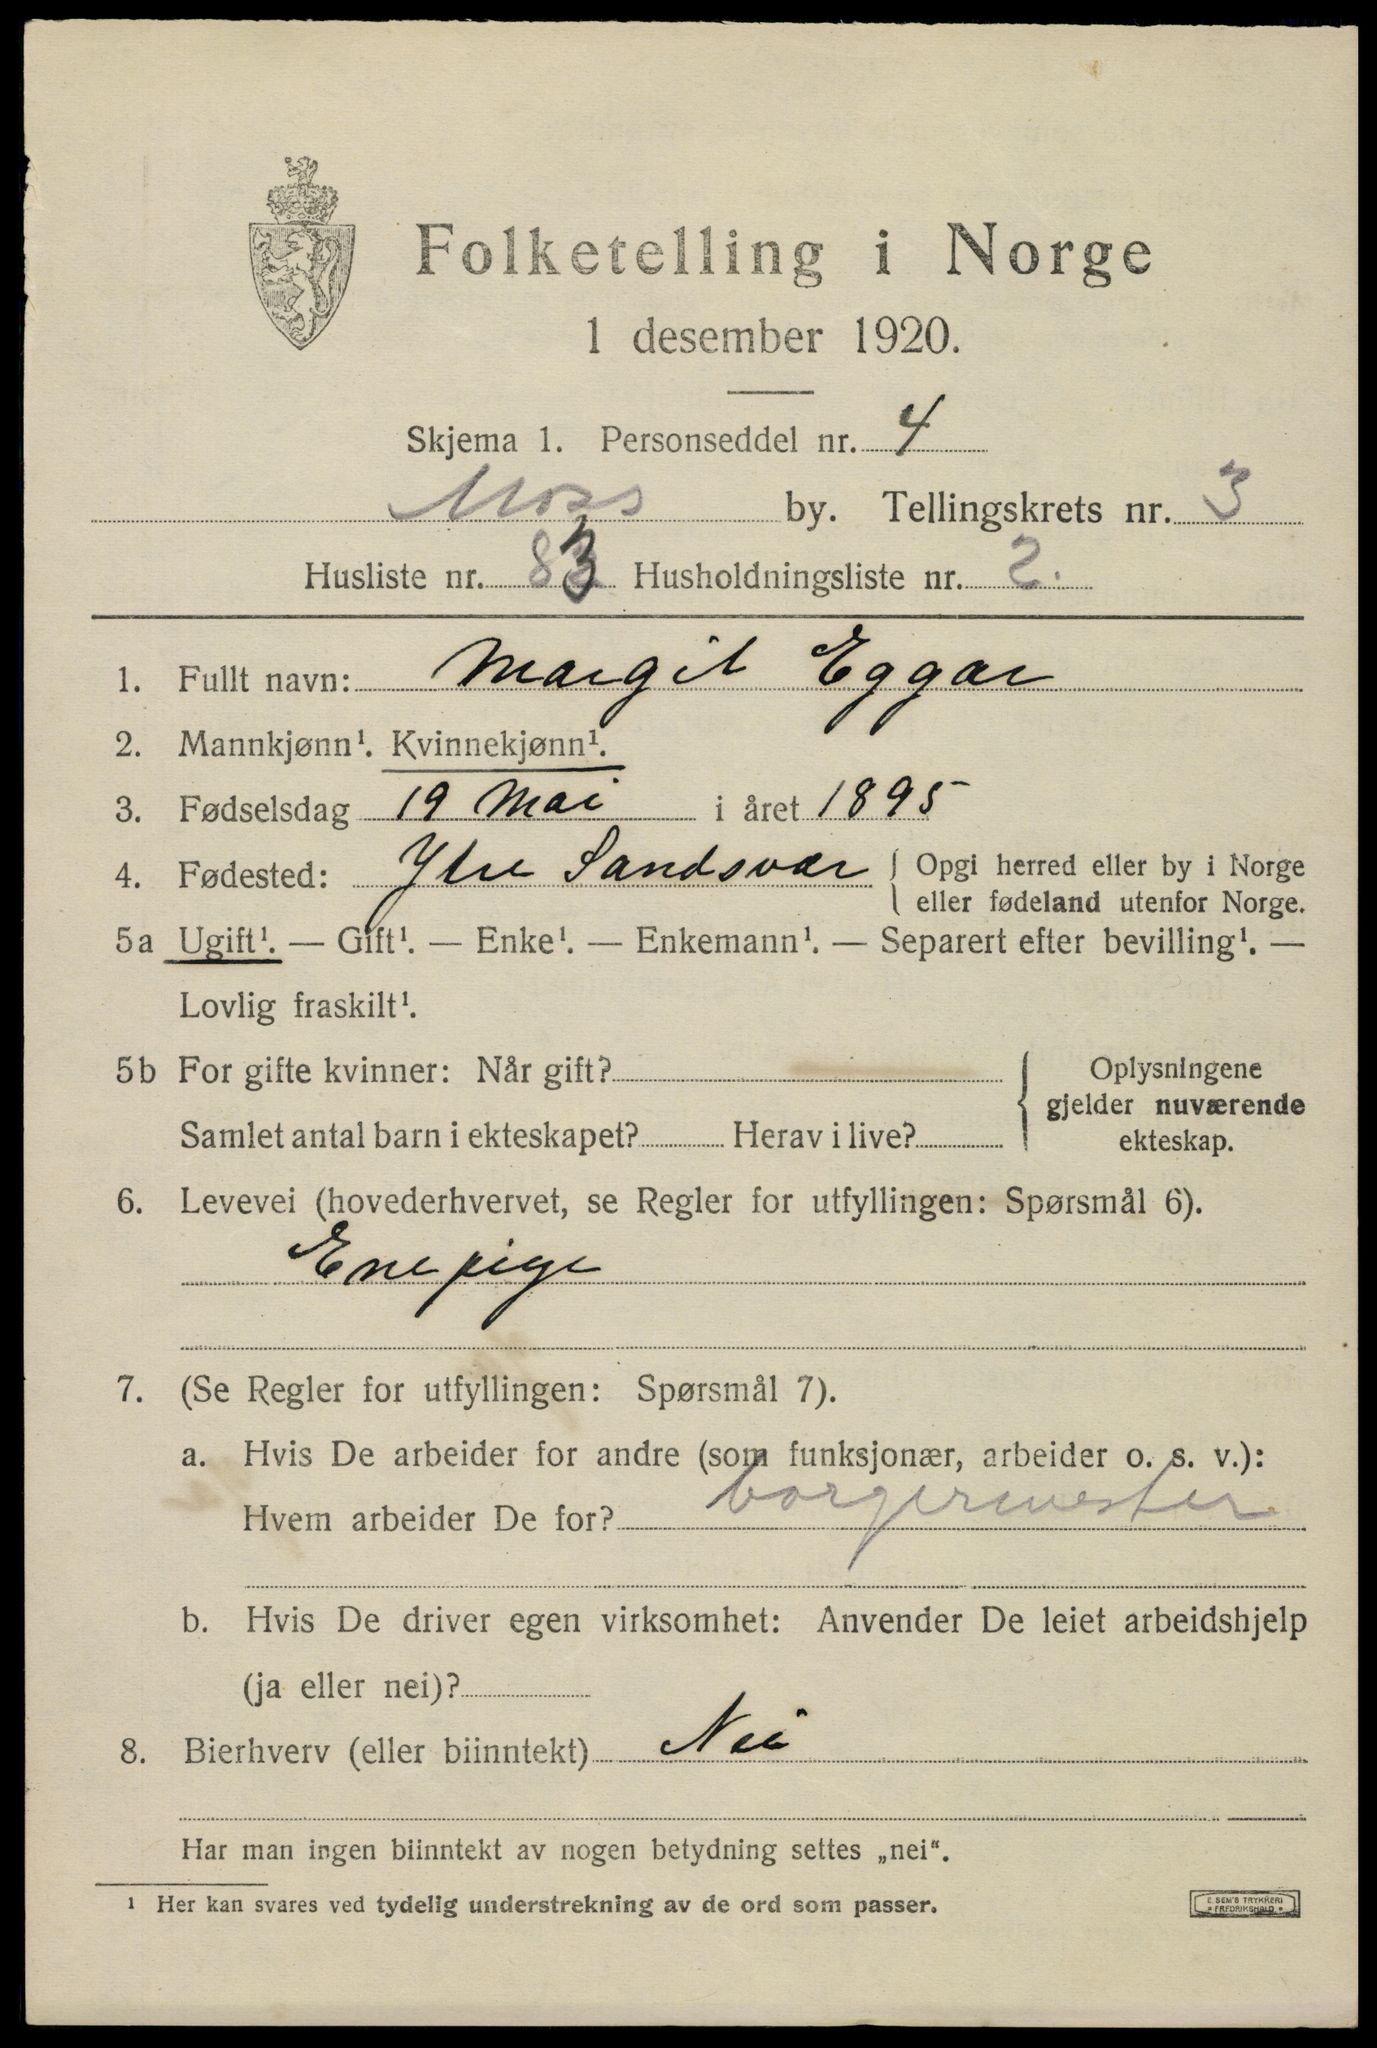 Folketelling i Norge
1 desember 1920.
Skjema 1. Personseddel nr. 4
Moss by. Tellingskrets nr. 3
Husliste nr. 83 Husholdningsliste nr. 2.
1. Fullt navn: Margit Eggar
2. Mannkjønn¹. Kvinnekjønn¹.
3. Fødselsdag 19 Mai i året 1895
4. Fødested: Ytre Sandsvær { Opgi herred eller by i Norge
eller fødeland utenfor Norge.
5a Ugift¹. — Gift¹. — Enke¹. — Enkemann¹. — Separert efter bevilling¹. —
Lovlig fraskilt¹.
5b For gifte kvinner: Når gift?
Samlet antal barn i ekteskapet? Herav i live?
{ Oplysningene
gjelder nuværende
ekteskap.
6. Levevei (hovederhvervet, se Regler for utfyllingen: Spørsmål 6).
Enepige
7. (Se Regler for utfyllingen: Spørsmål 7).
a. Hvis De arbeider for andre (som funksjonær, arbeider o. s. v.):
Hvem arbeider De for? borgermester
b. Hvis De driver egen virksomhet: Anvender De leiet arbeidshjelp
(ja eller nei)?
8. Bierhverv (eller biinntekt) Nei
Har man ingen biinntekt av nogen betydning settes „nei“.
¹ Her kan svares ved tydelig understrekning av de ord som passer.
E. SEM'S TRYKKERI
* FREDRIKSHALD *